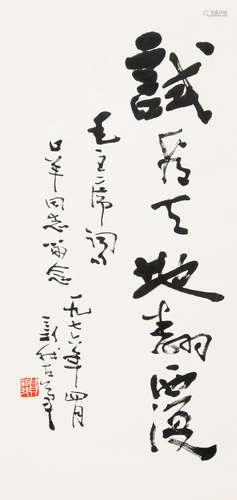 試看天地翻覆
毛主席词句
日羊同志留念
一九七六年四月